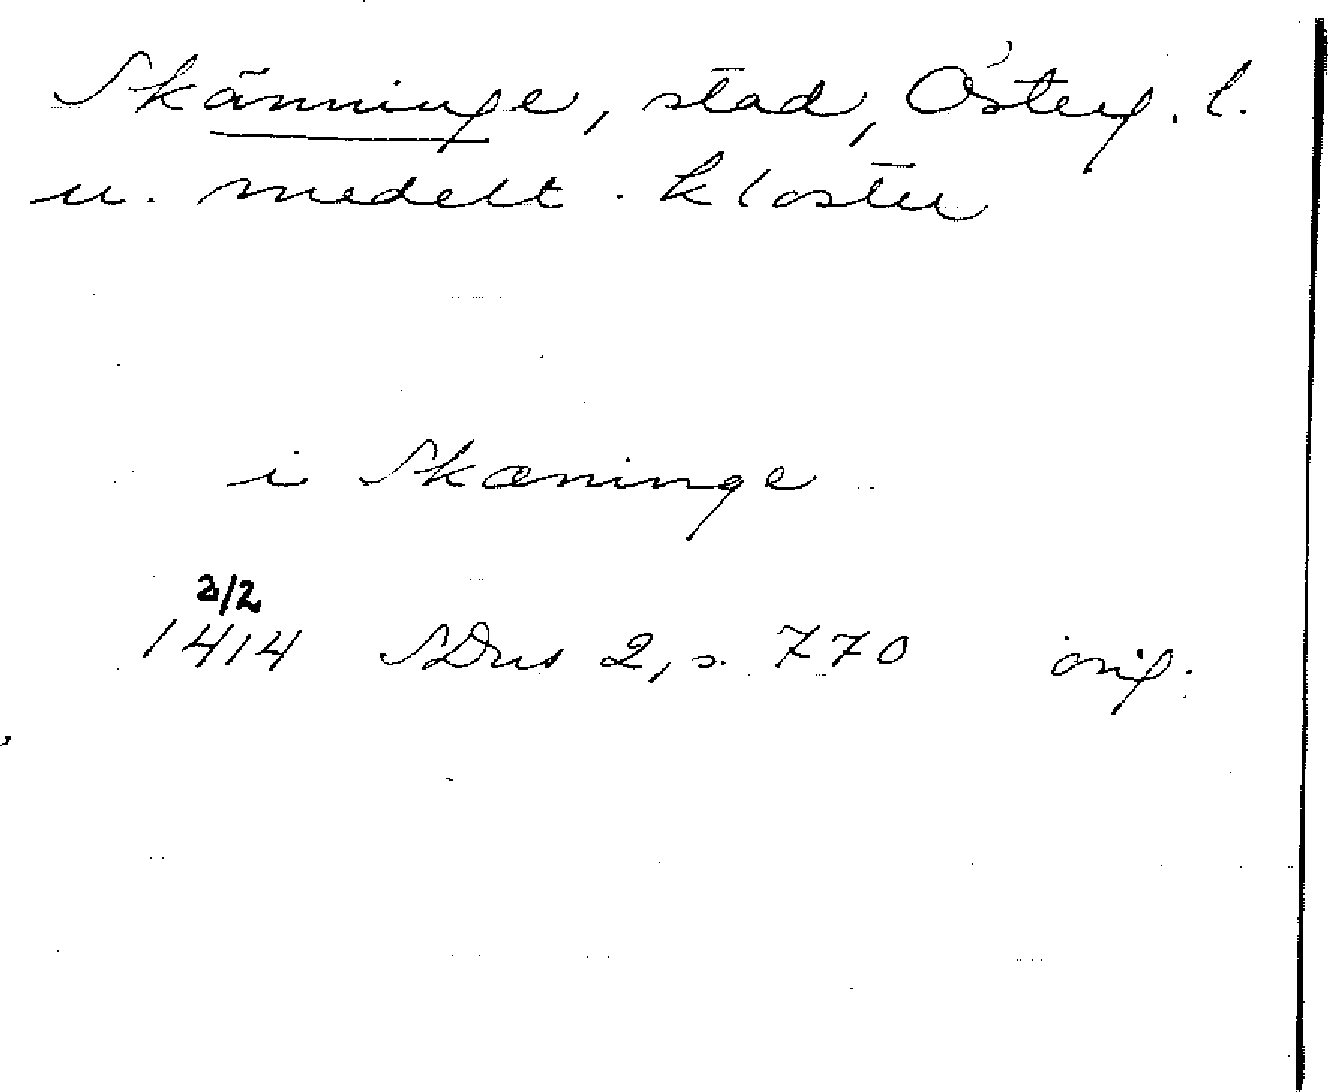 Skänninge, stad, Österg. l.
u. medelt. kloster
i Skæninge
2/2
1414 SDns 2, s. 770 orig.